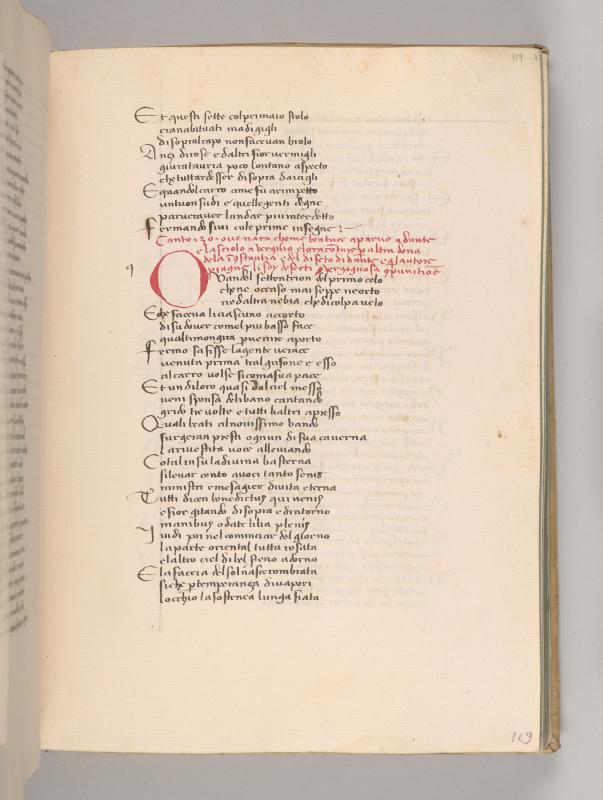 119
Et questi sette col primaio stolo
eran abituati ma di gigli
di sopral capo non facevan brolo
Anzi di rose e daltri fior vermigli
giuratauria poco lontano aspecto
che tuttardesser di sopra daicigli
E quandol carro ame fu arimpetto
un tuon sudi e quelle genti degne
parveraver landar piu interdetto
fermandosivi cole prime insegne
Canto 30 ove narra chome beatrice aparvio a dante
e lasciolo a vergilio
dela e del di dante
li soy defecti
q
Quandol settentrion del primo celo
che ne occaso mai seppe ne orto
ne daltra nebia che di colpa velo
E che faceva li ciascuno accorto
di su dover comel piu basso face
qual timon gira per venire aporto
fermo saffisse la gente verace
venuta prima tral grifone e esso
al carro volse si come a sua pace
Et un di loro quasi dal ciel messo
veni sponsa de libano cantando
grido tre volte e tutti li altri apresso
Quali beati al novissimo bando
surgeran presti ognun di sua caverna
la rivestita voce alleviando
Cotal in su la divina basterna
si levar cento a voci tanto senis
ministri e mesagier di vita eterna
Tutti dicen benedictus qui venis
e fior gitando di sopra e dintorno
manibus o date lilia plenis
I vidi poi nel cominciar del giorno
la parte oriental tutta rosata
el altro ciel di bel sereno adorno
E la faccia del sol nascer ombrata
si che per temperanza di vapori
locchio la sostenea lunga fiata
119